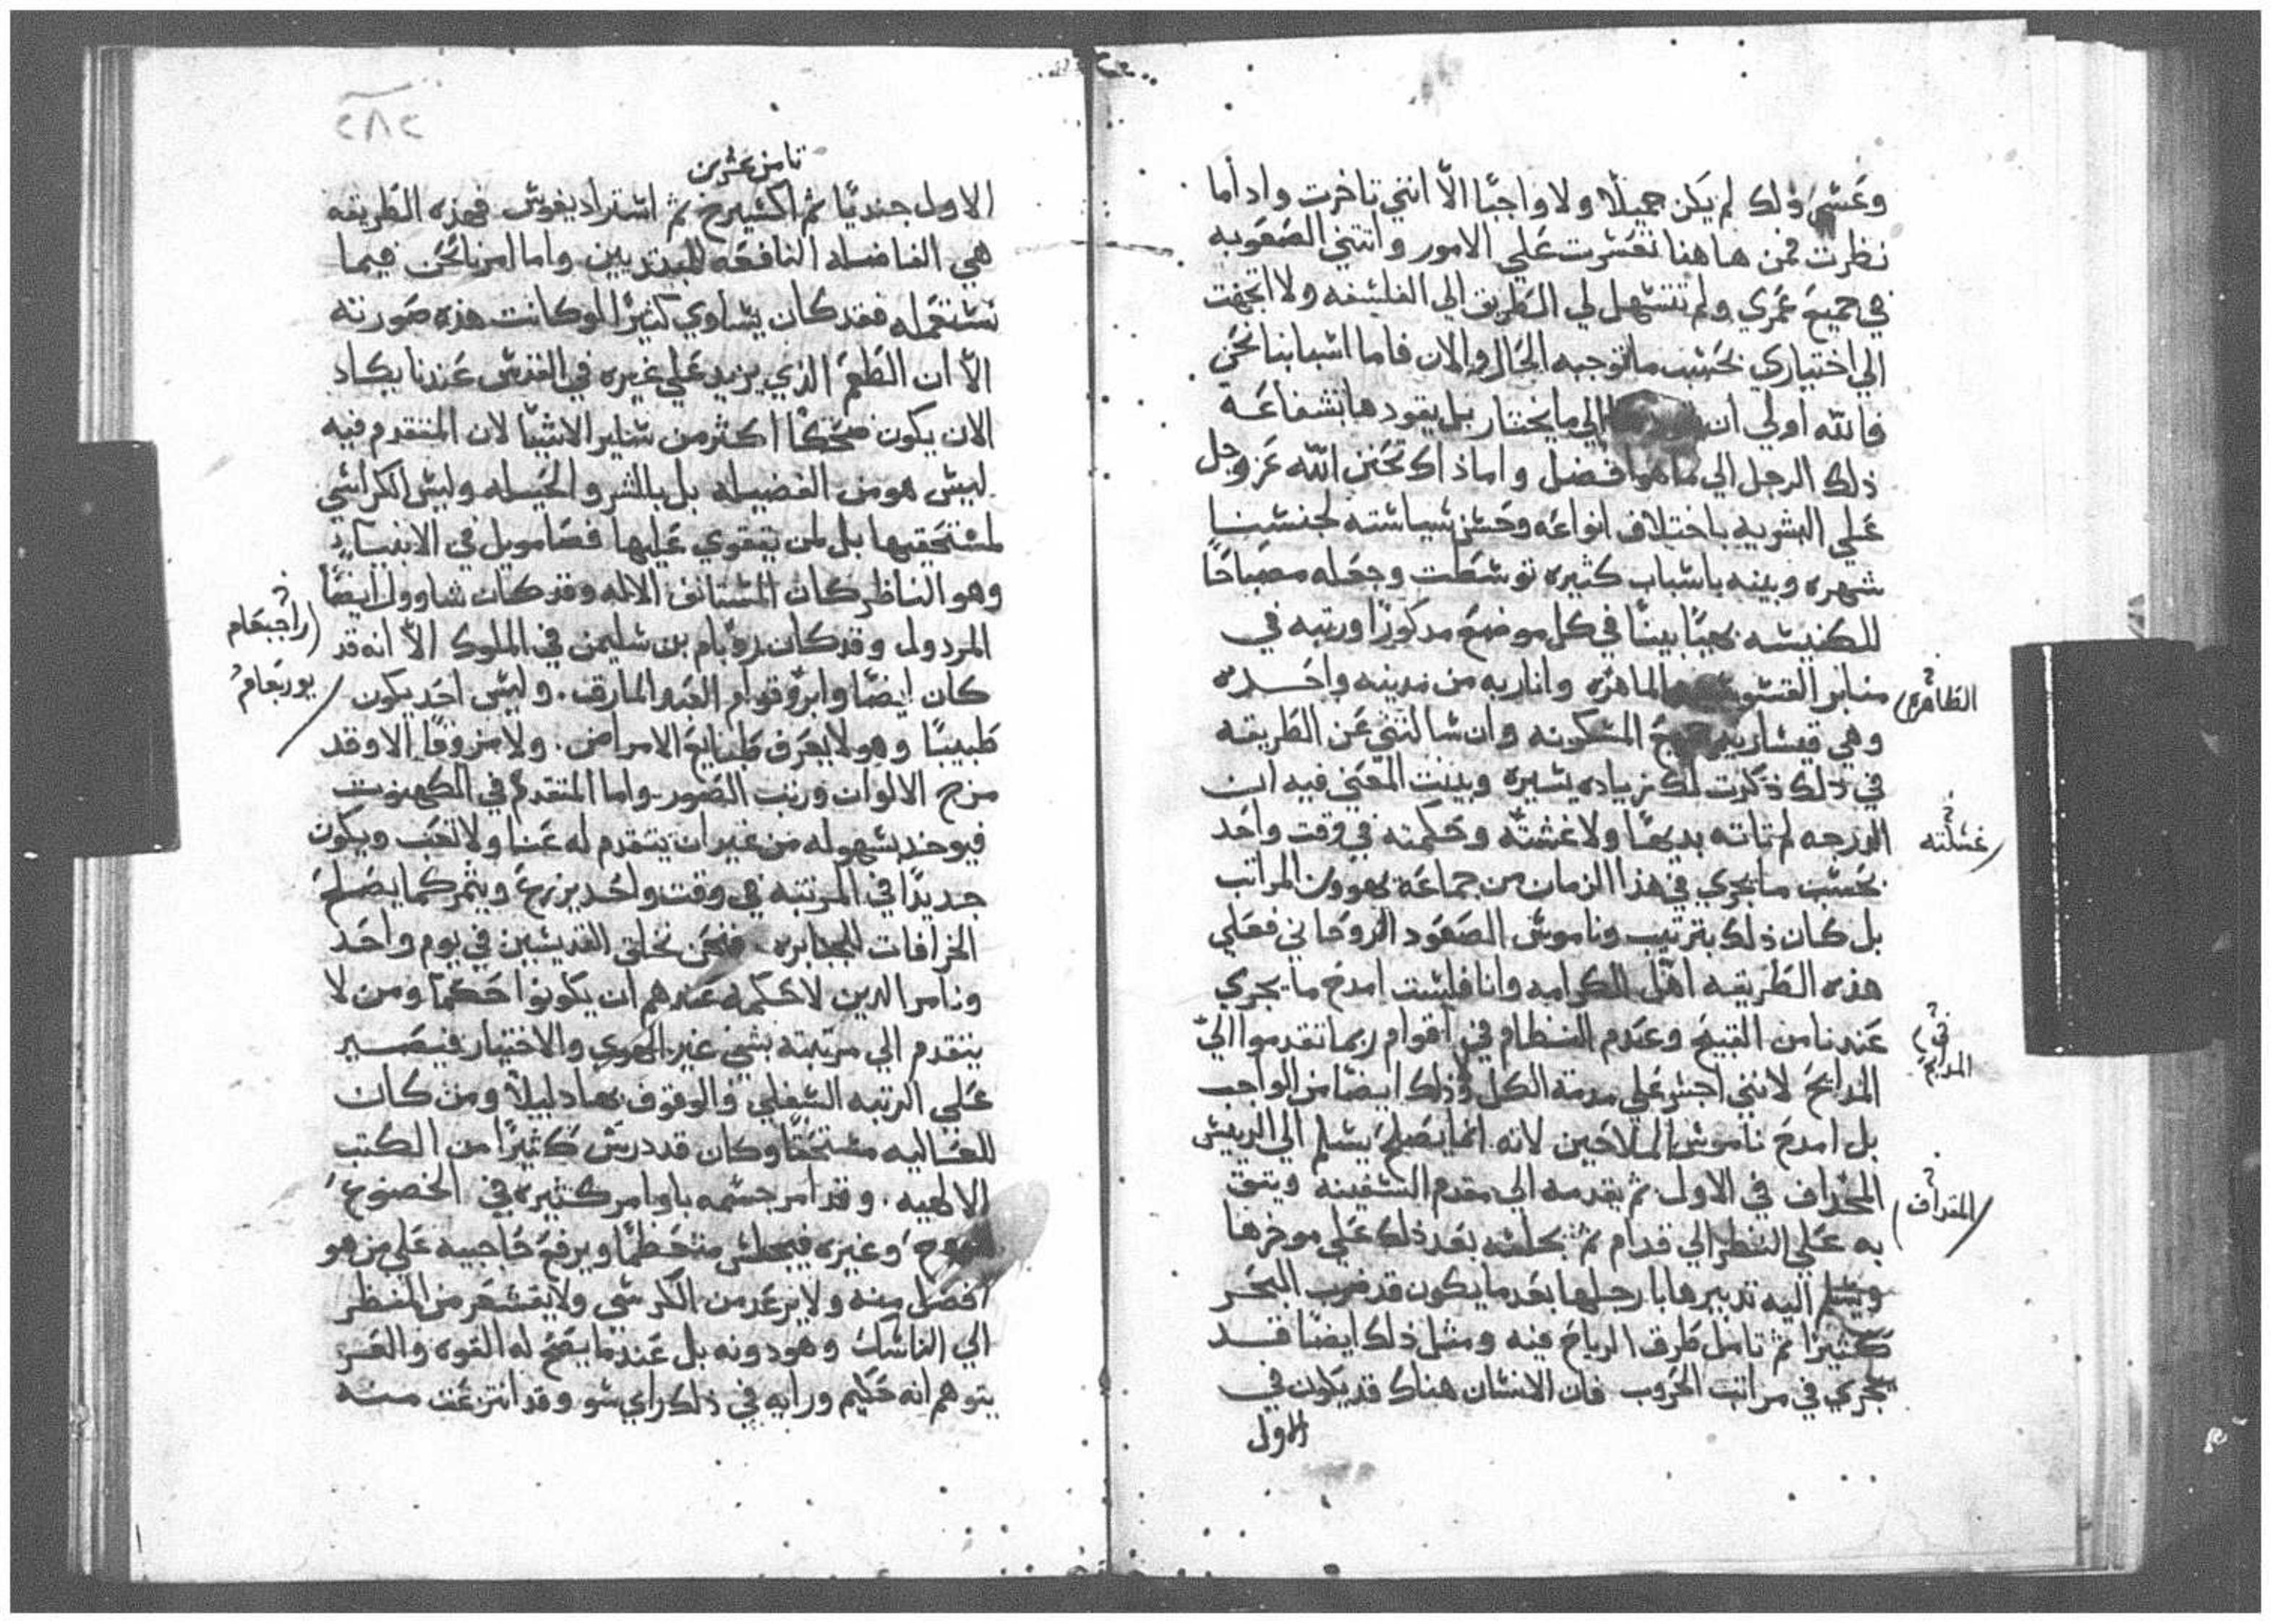 وعسي ذلك لم يكن جميلا ولا واجبًا الّا انني تاخرت واد أما
نظرت فمن هاهنا تعسرت علي الامور واتتني الصعوبه
في جميع عمري ولم تتسهل لي الطريق الي الفلسفه ولا اتجهت
الي اختياري بحسب ما توجبه الحال والان فاما اسبابنا نحن
فالله اولي ان الي ما يختار بل يقودها بشفاعة
ذلك الرجل الي ما هو افضل واما ذاك تحنن الله عز وجل
علي البشريه باختلاف انواعه وحسن سياسته لجنسنا
شهره وبينه باسباب كثيره توسطت وجعله مصباحًا
للكنيسه بهيًا بينًا في كل موضع مدكورًا ورتبه في
منابر القسو الماهره وانار به من مدينه واحده
الطاهره
وهي قيساريه المسكونه وان سالتني عن الطريقه
في ذلك ذكرت لك زياده يسيره وبينت المعني فيه ان
الدرجه لم تاته بديهًا ولا غسّته وحكمته في وقت واحد
غسلته
بحسب ما يجري في هذا الزمان من جماعة يهوون المراتب
بل كان ذلك بترتيب وناموس الصعود الروحاني فعلي
هذه الطريقه اهّل للكرامه وانا فليست امدح ما يجري
عندنا من القبيح وعدم النظام في اقوام ربما تقدموا الي
في
المدابح لانني اجسر علي مدمة الكل وذلك ايضًا من الواجب
المذبح
بل امدح ناموس الملاحين لانه انما يصلح يسلم الي الرييس
المخداف في الاول ثم يقدمه الي مقدم السفينه ويتق
المقداف
به علي النظر الي قدام ثم يجلسه بعد ذلك علي موخرها
ويسلم اليه تدبيرها بارجلها بعد ما يكون قد ضرب البحر
كثيرًا ثم تامل طرق الرياح فيه ومثل ذلك ايضًا قد
يجري في مراتب الحروب فان الانسان هناك قد يكون في
الاول
٢٨٢
ثامن عشرين
الاول جنديًا ثم اكسيرخ ثم استراديغوس فهذه الطريقه
هي الفاضله النافعه للمبتديين واما امرنا نحن فيما
نستعمله فقد كان يساوي كثيرًا لو كانت هذه صورته
الّا ان الطغم الذي يزيد علي غيره في القدس عندنا يكاد
الان يكون ضحكًا اكثر من ساير الاشيا لان المتقدم فيه
ليس هو من الفضيله بل بالشر والحيله وليس الكراسي
لمستحقيها بل لمن يتقوي عليها فصامويل في الانبيا
وهو الناظر كان المستانف الاله وقد كان شاوول ايضًا
المردول وقد كان روبام بن سليمن في الملوك الّا انه قد
راجبعام
كان ايضًا وابروقوام العبد والمارق. وليس احد يكون
يوربعام
طبيبًا وهو لا يعرف طبايع الامراض. ولا مزوقًا الا وقد
مزج الالوان ورتب الصور. واما المتقدم في الكهنوت
فيوخد بسهوله من غير ان يتقدم له عنا ولا تعب ويكون
جديدًا في المرتبه في وقت واحد يزرع ويثمر كما يصلح
الخرافات للجبابره فنحن نخلق القديسين في يوم واحد
ونامر الدين لا حكمه عندهم ان يكونوا حكمًا ومن لا
يتقدم الي مرتبته بشي غير الهوي والاختيار فيصير
علي الرتبه السفلي والوقوف بها دليلًا ومن كان
للعاليه مستحقًا وكان قد درس كثيرًا من الكتب
الالهيه. وقد امر جسمه باوامر كثيره في الخضوع
للروح وغيره فيجلس متحطمًا ويرفع حاجبيه علي من هو
افضل منه ولا يرعد من الكرسي ولا يقشعر من المنظر
الي الناسك وهو دونه بل عندما يصح له القوه والعز
يتوهم انه حكيم ورايه في ذلك راي سو وقد انتزعت منه